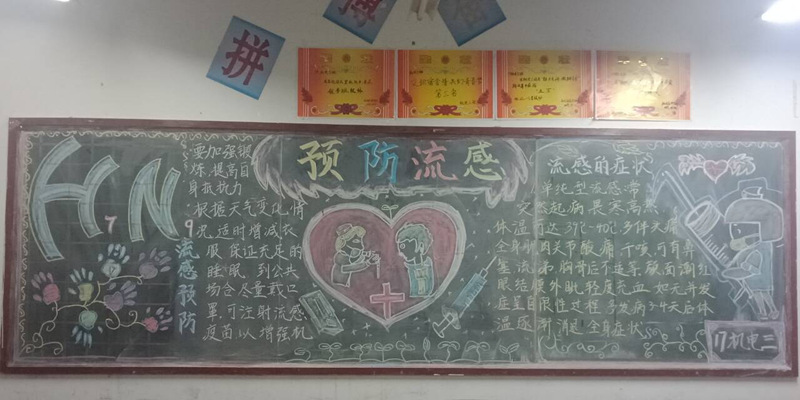 拼
第二名
H7N9
流感预防
要加强锻
炼,提高自
身抵抗力
根据天气变化,情
况适时增减衣
服 保证充足的
睡眠,到公共
场合尽量戴口
罩 可注射流感
疫苗以增强机
预防流感
流感的症状
单纯型流感:常
突然起病 畏寒高热
体温可达 37℃-40℃ 多伴头痛
全身肌肉关节酸痛 干咳,可有鼻
塞 流涕 胸骨后不适等 颜面潮红
眼结膜外眦轻度充血 如无并发
症呈自限性过程 多发病3-4天后体
温逐渐消退 全身症状
17机电三